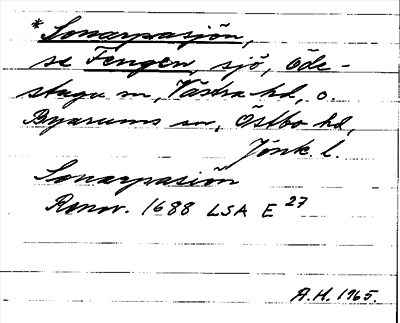 *Sonarpasjön,
se Fengen, sjö, Öde-
stugu sn, Västra hd, o.
Byarums sn, Östbo hd,
Jönk. l.
Sonarpasiön
Renov. 1688 LSA E 27
A.H. 1965.